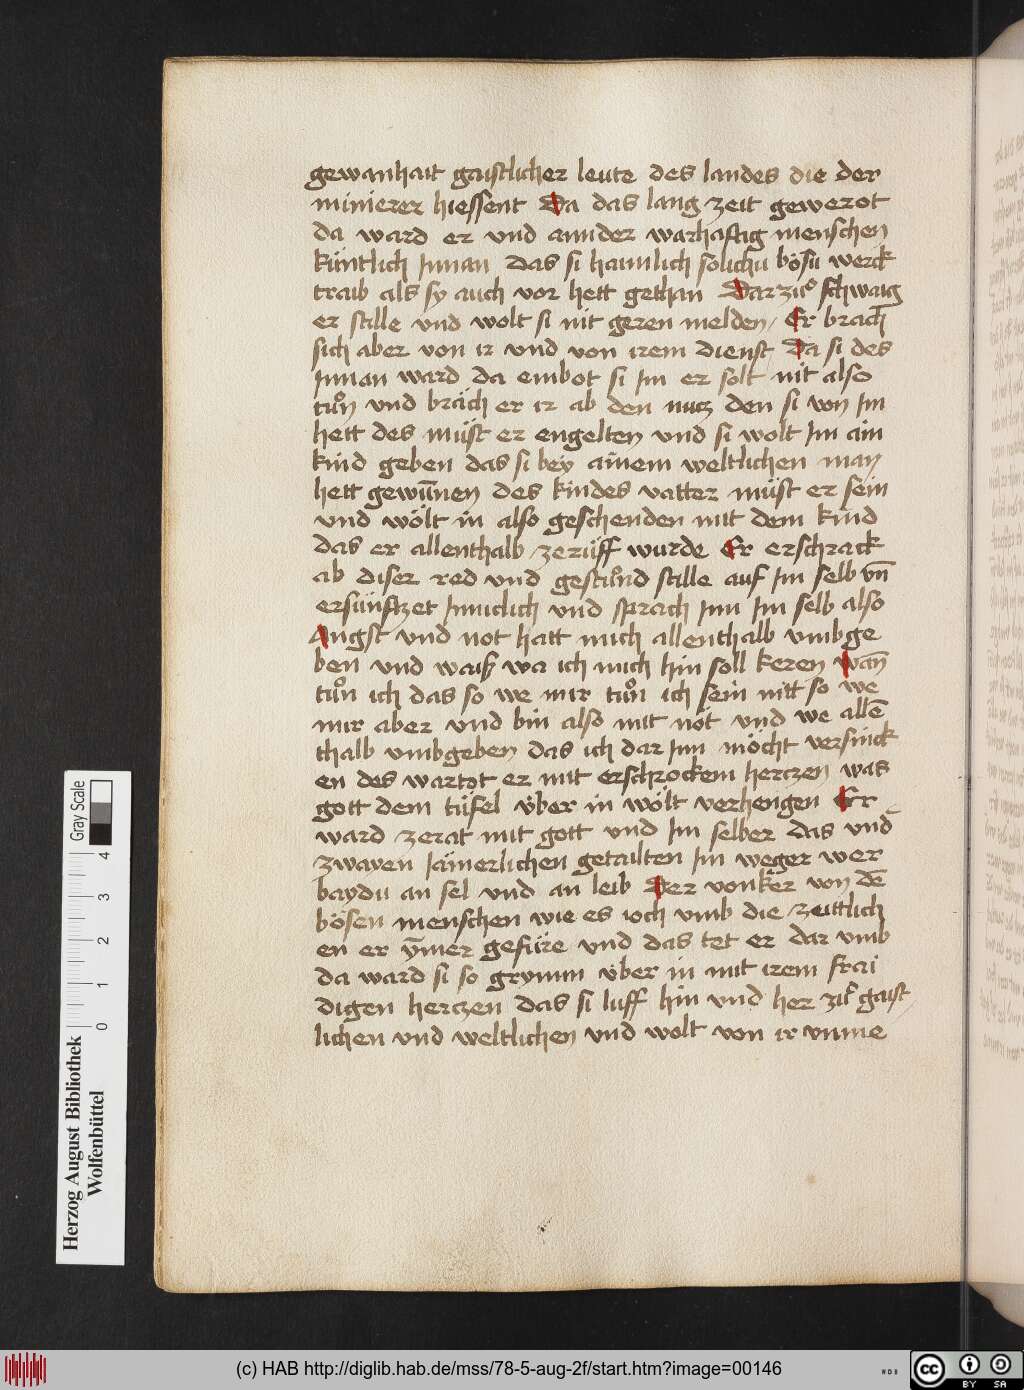 gewanhait gaistlicher leute des landes die der
minierer hiessent Da das lang zeit gewerot
da ward er und annder warhafftig menschen
küntlich Innan das si haimlich solichu bösu werck
traib als sy auch vor hett gethan Darzuͦ schwaig
er stille und wolt si nit geren melden / Er brach
sich aber von ir und von irem dienst Da si des
Innan ward da embot si Im er solt nit also
tuͦn und bräch er ir ab den nutz den si von Im
hett des müst er engelten und si wolt Im ain
kind geben das si bey ainem weltlichen man
hett gewūnen des kindes vatter müst er sein
und wölt in also geschenden mit dem kind
das er allenthalb zerüff wurde Er erschrack
ab diser red und gestuͦnd stille auf Im selb vn̄
ersünftzet Inniclich und sprach Inn Im selb also
Angst und not hatt mich allenthalb umbge
ben und waiß wa ich mich hin soll keren wan̄
tuͦn ich das so we mir tuͦn ich sein nitt so we
mir aber und bin also mit not und we allē
thalb umbgeben das ich dar Inn möcht versinck
en des wartot er mit erschrockem hertzen was
gott dem tüfel über in wölt verhengen Er
ward zerat mit gott und Im selber das und
zwayen Jämerlichen getailten Im weger wer
baydu an sel und an leib Der von ker von dē
bösen menschen wie es ioch umb die zeittlich
en er ÿmer gefüre und das tet er dar umb
da ward si so grymm über in mit irem frai
digen hertzen das si luff hin und her zuͦ gaist
lichen und weltlichen und wolt von ir unme
Herzog August Bibliothek
Wolfenbüttel
0 1 2 3 4
Gray Scale
(c) HAB http://diglib.hab.de/mss/78-5-aug-2f/start.htm?image=00146
WDB
cc BY SA